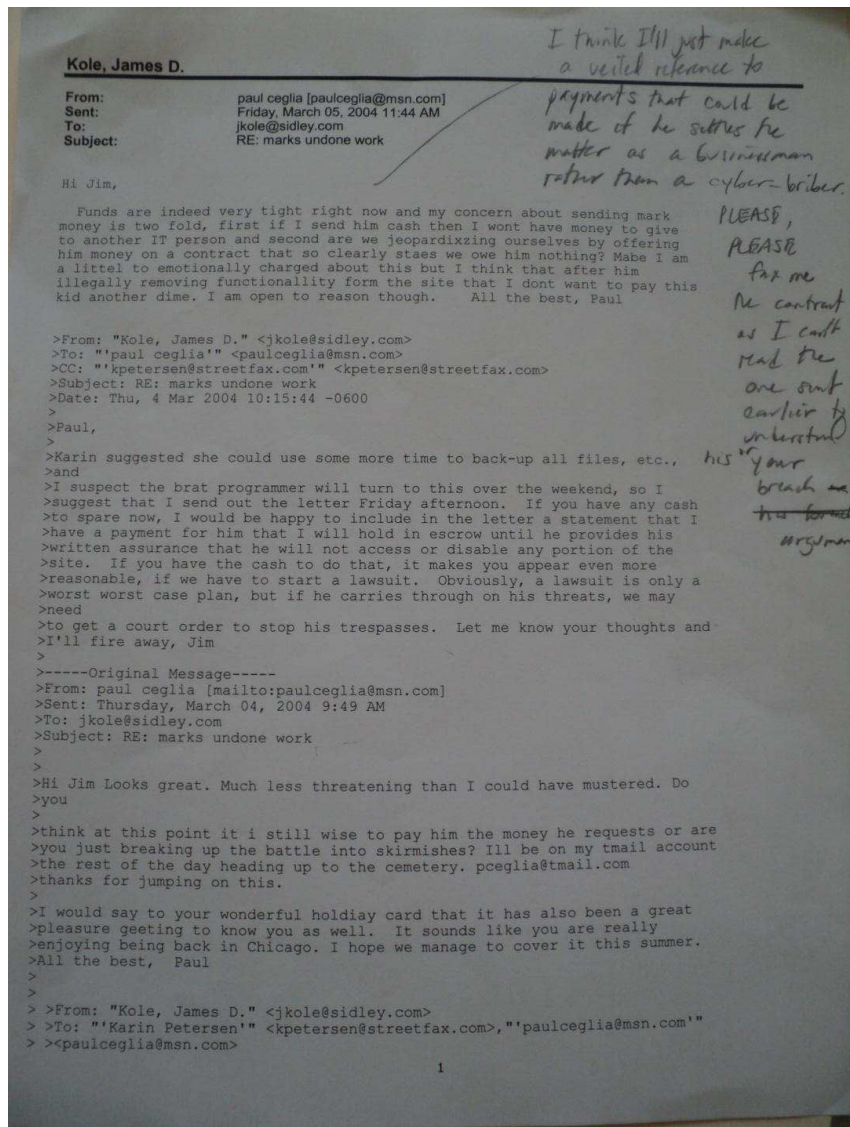 I think I'll just make
a veiled reference to
payments that could be
made if he settles the
matter as a businessman
rather than a cyber-briber.
PLEASE,
PLEASE
fax me
the contract
as I can't
read the
one sent
earlier to
understand
his "your
breach
argument
Kole, James D.
From: paul ceglia [paulceglia@msn.com]
Sent: Friday, March 05, 2004 11:44 AM
To: jkole@sidley.com
Subject: RE: marks undone work
Hi Jim,
Funds are indeed very tight right now and my concern about sending mark
money is two fold, first if I send him cash then I wont have money to give
to another IT person and second are we jeopardixzing ourselves by offering
him money on a contract that so clearly staes we owe him nothing? Mabe I am
a littel to emotionally charged about this but I think that after him
illegally removing functionallity form the site that I dont want to pay this
kid another dime. I am open to reason though. All the best, Paul
>From: "Kole, James D." <jkole@sidley.com>
>To: "'paul ceglia'" <paulceglia@msn.com>
>CC: "'kpetersen@streetfax.com'" <kpetersen@streetfax.com>
>Subject: RE: marks undone work
>Date: Thu, 4 Mar 2004 10:15:44 -0600
>
>Paul,
>
>Karin suggested she could use some more time to back-up all files, etc.,
>and
>I suspect the brat programmer will turn to this over the weekend, so I
>suggest that I send out the letter Friday afternoon. If you have any cash
>to spare now, I would be happy to include in the letter a statement that I
>have a payment for him that I will hold in escrow until he provides his
>written assurance that he will not access or disable any portion of the
>site. If you have the cash to do that, it makes you appear even more
>reasonable, if we have to start a lawsuit. Obviously, a lawsuit is only a
>worst worst case plan, but if he carries through on his threats, we may
>need
>to get a court order to stop his trespasses. Let me know your thoughts and
>I'll fire away, Jim
>
>-----Original Message-----
>From: paul ceglia [mailto:paulceglia@msn.com]
>Sent: Thursday, March 04, 2004 9:49 AM
>To: jkole@sidley.com
>Subject: RE: marks undone work
>
>
>Hi Jim Looks great. Much less threatening than I could have mustered. Do
>you
>
>think at this point it i still wise to pay him the money he requests or are
>you just breaking up the battle into skirmishes? Ill be on my tmail account
>the rest of the day heading up to the cemetery. pceglia@tmail.com
>thanks for jumping on this.
>
>I would say to your wonderful holdiay card that it has also been a great
>pleasure geeting to know you as well. It sounds like you are really
>enjoying being back in Chicago. I hope we manage to cover it this summer.
>All the best, Paul
>
>
> >From: "Kole, James D." <jkole@sidley.com>
> >To: "'Karin Petersen'" <kpetersen@streetfax.com>,"'paulceglia@msn.com'"
> ><paulceglia@msn.com>
1